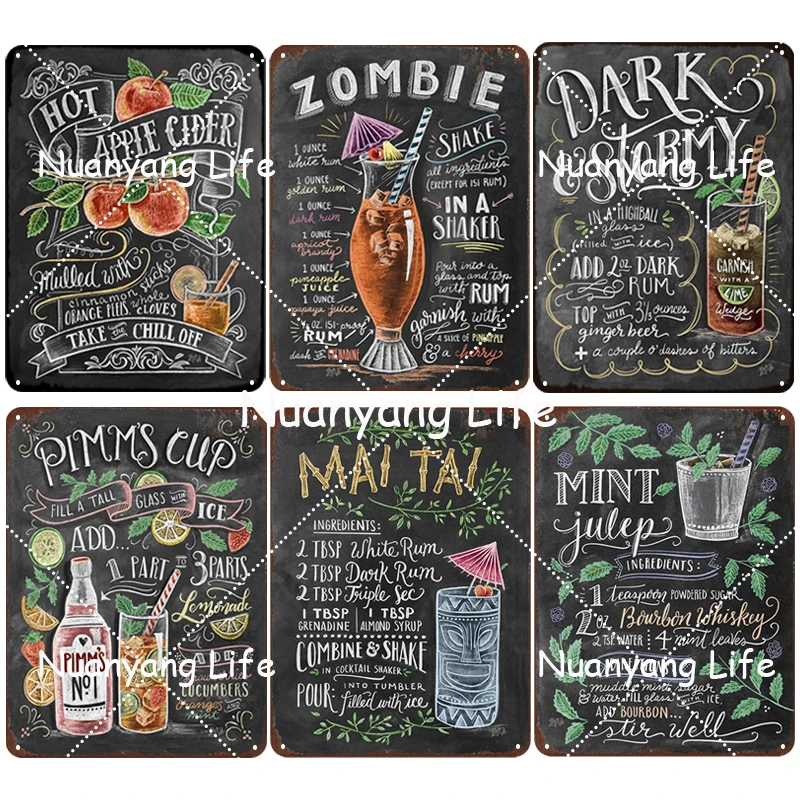 HOT
APPLE CIDER
Mulled with
cinnamon sticks
ORANGE PEEL whole
CLOVES
TAKE the CHILL OFF
ZOMBIE
1 OUNCE
white rum
1 OUNCE
golden rum
1 OUNCE
dark rum
1 OUNCE
apricot
brandy
1 OUNCE
pineapple
JUICE
1 OUNCE
papaya juice
½ oz. 151-proof
RUM
dash of GRENADINE
SHAKE
all ingredients
(EXCEPT FOR 151 RUM)
IN A
SHAKER
Pour into a
glass and top
with RUM
garnish with
A SLICE OF PINEAPPLE
& a cherry
DARK
& STORMY
IN A HIGHBALL
glass
filled with ice
ADD 2 oz DARK
RUM
TOP with 3½ ounces
ginger beer
+ a couple o' dashes of bitters
GARNISH
WITH A
LIME
Wedge
PIMM'S CUP
FILL A TALL GLASS WITH ICE
ADD...
1 PART TO 3 PARTS
Lemonade
CUCUMBERS
oranges AND
mint
PIMM'S
Nº1
MAI TAI
INGREDIENTS:
2 TBSP White Rum
2 TBSP Dark Rum
2 TBSP Triple Sec
1 TBSP GRENADINE
1 TBSP ALMOND SYRUP
COMBINE & SHAKE
IN COCKTAIL SHAKER
POUR INTO TUMBLER
filled with ice
MINT
julep
INGREDIENTS:
1 teaspoon POWDERED SUGAR
2 oz Bourbon Whiskey
2 TSP WATER 4 mint leaves
muddle mint sugar
& water. FILL glass WITH ICE.
ADD BOURBON...
stir well
Nuanyang Life
Nuanyang Life
Nuanyang Life
Nuanyang Life
Nuanyang Life